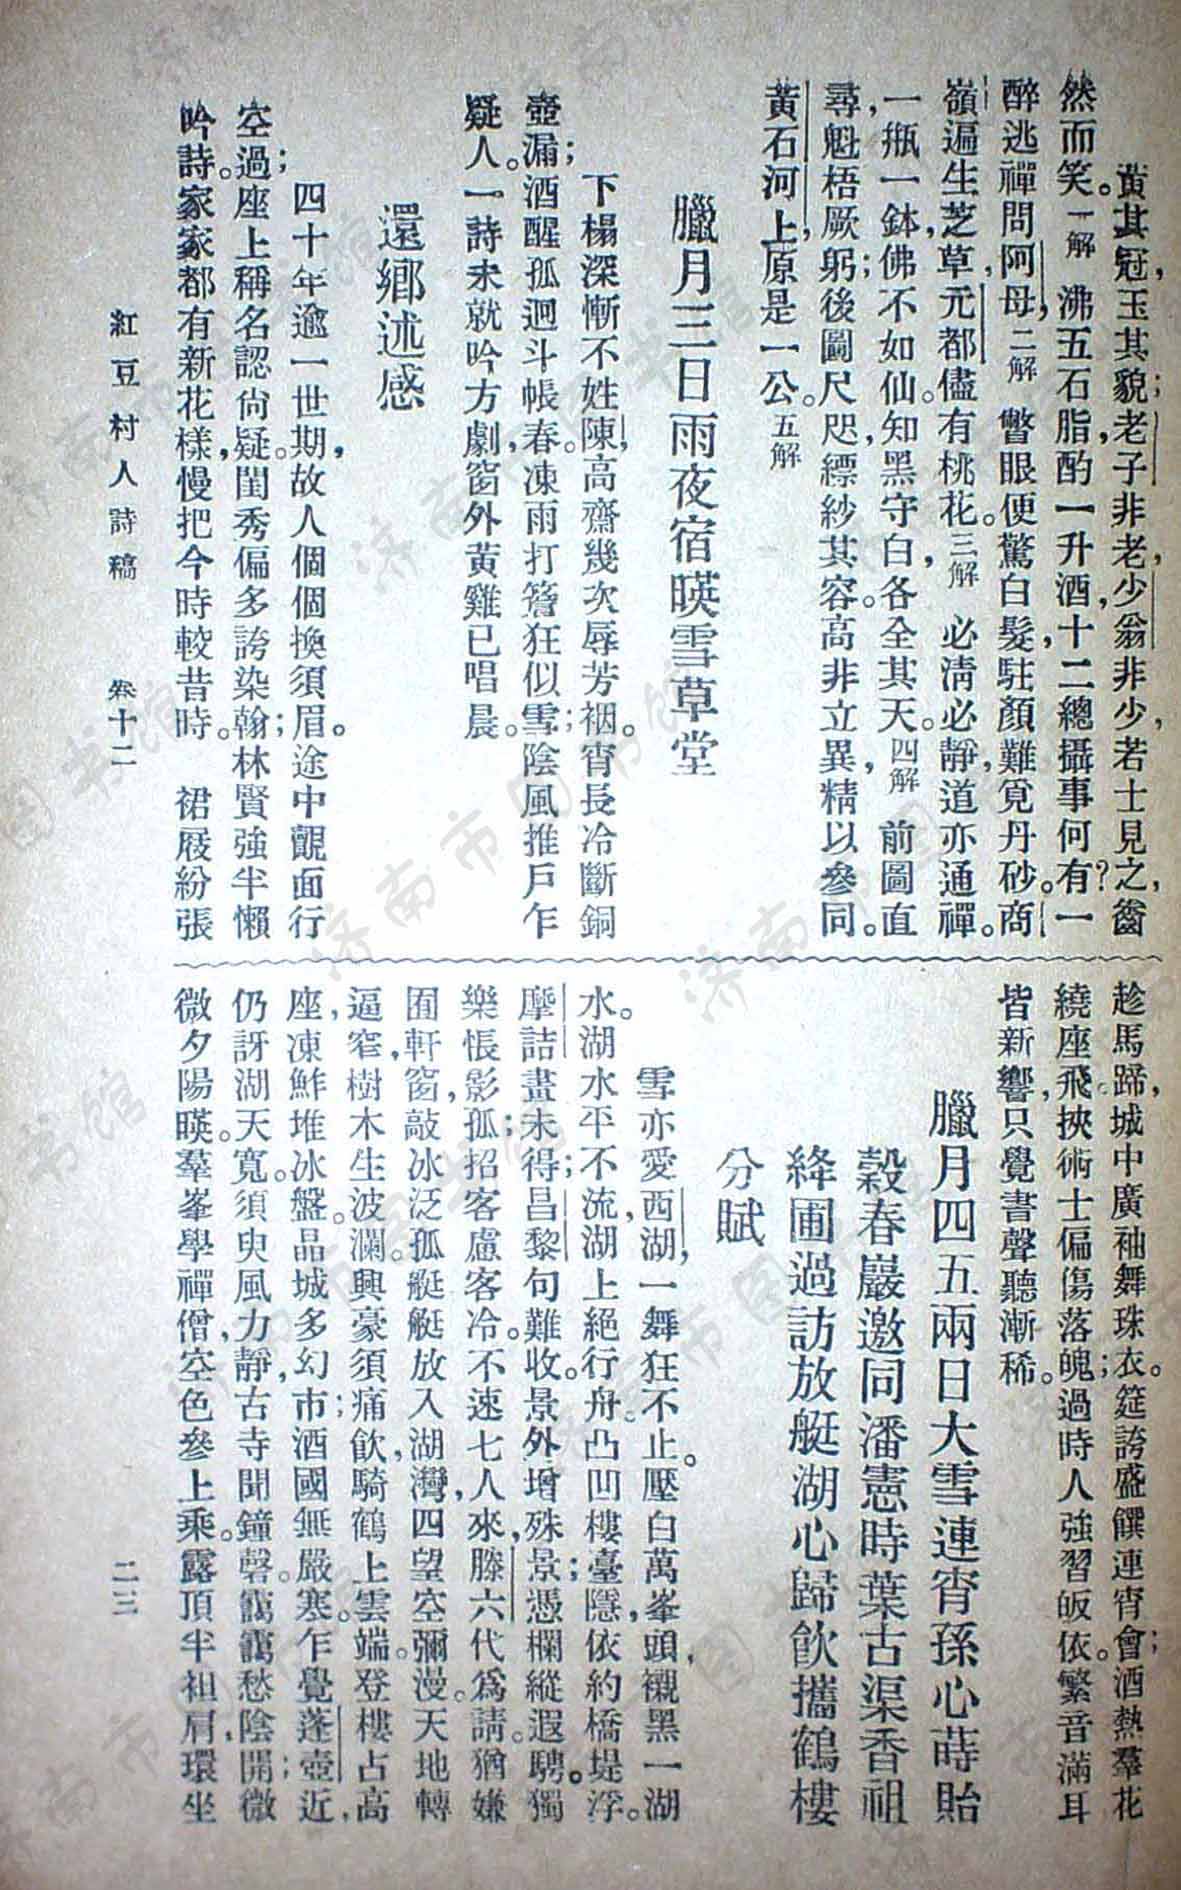 黃其冠,玉其貌;老子非老,少翁非少,若士見之,齒
然而笑。一解 沸五石脂,酌一升酒,十二總攝事何有?一
醉逃禪問阿母,二解 瞥眼便驚白髮,駐顏難覓丹砂。商
嶺遍生芝草,元都儘有桃花。三解 必清必靜,道亦通禪。
一瓶一鉢,佛不如仙。知黑守白,各全其天。四解 前圖直
尋,魁梧厥躬;後圖尺咫,縹紗其容。高非立異,精以參同。
黃石河上,原是一公。五解
臘月三日雨夜宿暎雪草堂
下榻深慚不姓陳,高齋幾次辱芳裀。宵長冷斷銅
壺漏;酒醒孤迴斗帳春。凍雨打簷狂似雪;陰風推戶乍
疑人。一詩未就吟方劇,窗外黃雞已唱晨。
還鄉述感
四十年逾一世期,故人個個換須眉。途中覿面行
空過;座上稱名認尙疑。閨秀偏多誇染翰;林賢強半懶
吟詩。家家都有新花樣,慢把今時較昔時。 裙屐紛張
趁馬蹄,城中廣袖舞珠衣。筵誇盛饌連宵會;酒熱羣花
繞座飛。挾術士偏傷落魄;過時人強習皈依。繁音滿耳
皆新響,只覺書聲聽漸稀。
臘月四五兩日大雪連宵孫心蒔貽
穀春巖邀同潘憲時葉古渠香祖
絳圃過訪放艇湖心歸飲攜鶴樓
分賦
雪亦愛西湖,一舞狂不止。壓白萬峯頭,襯黑一湖
水。湖水平不流,湖上絕行舟。凸凹樓臺隱,依約橋堤浮。
摩詰畫未得;昌黎句難收。景外增殊景;憑欄縱遐騁。獨
樂悵影孤;招客慮客冷。不速七人來,滕六代爲請。猶嫌
囿軒窗,敲冰泛孤艇。艇放入湖灣,四望空彌漫。天地轉
逼窄,樹木生波瀾。興豪須痛飲,騎鶴上雲端。登樓占高
座,凍鮓堆冰盤。品城多幻市;酒國無嚴寒。乍覺蓬壺近,
仍訝湖天寬。須臾風力靜,古寺聞鐘磬。靄靄愁陰開;微
微夕陽暎。羣峯學禪僧,空色參上乘。露頂半袒肩,環坐
紅豆村人詩稿 卷十二
二三